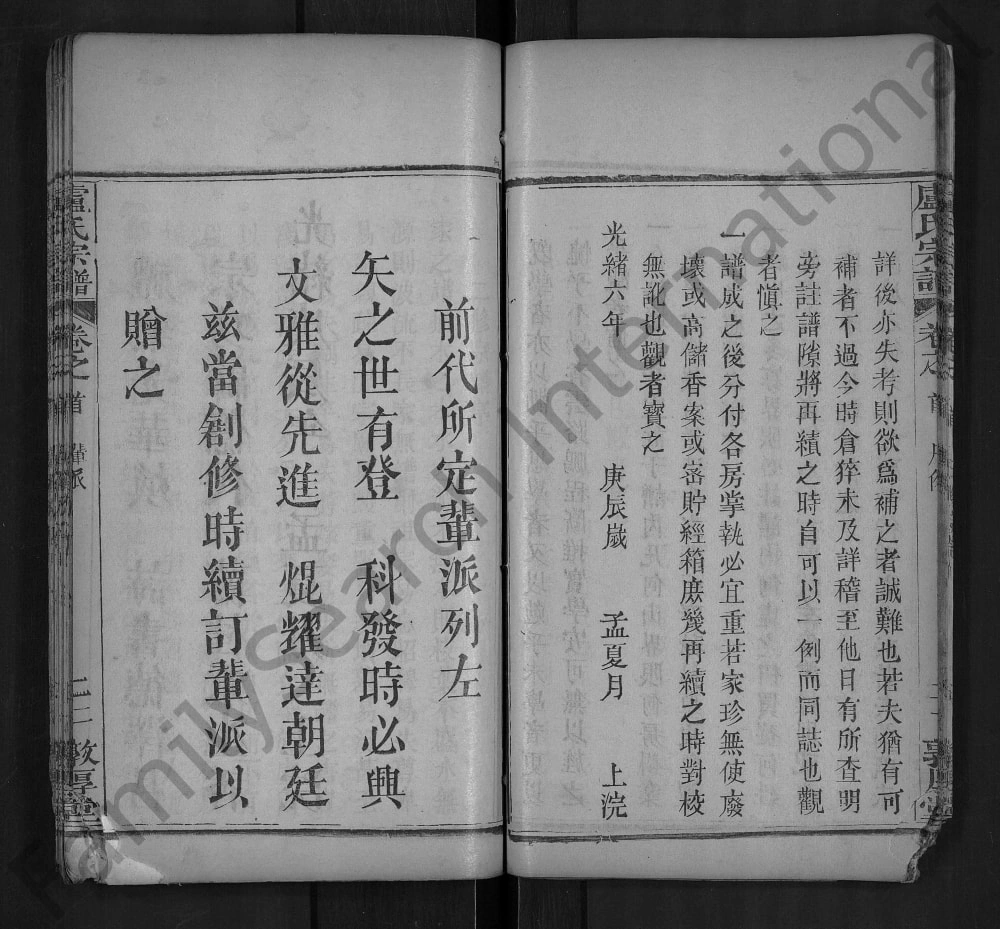 盧氏宗譜
卷之首
詳後亦失考則欲爲補之者誠難也若夫猶有可
補者不過今時倉猝未及詳稽至他日有所查明
旁註譜隙將再續之時自可以一例而同誌也觀
者愼之
一譜成之後分付各房掌執必宜重若家珍無使廢
壞或高儲香案或密貯經箱庶幾再續之時對校
無訛也觀者寳之
光緒六年 庚辰嵗 孟夏月 上浣
前代所定輩派列左
矢之世有登 科發時必興
文雅從先進 焜耀達朝廷
兹當創修時續訂輩派以
贈之
盧氏宗譜
卷之首
敦厚堂
Familysearch International